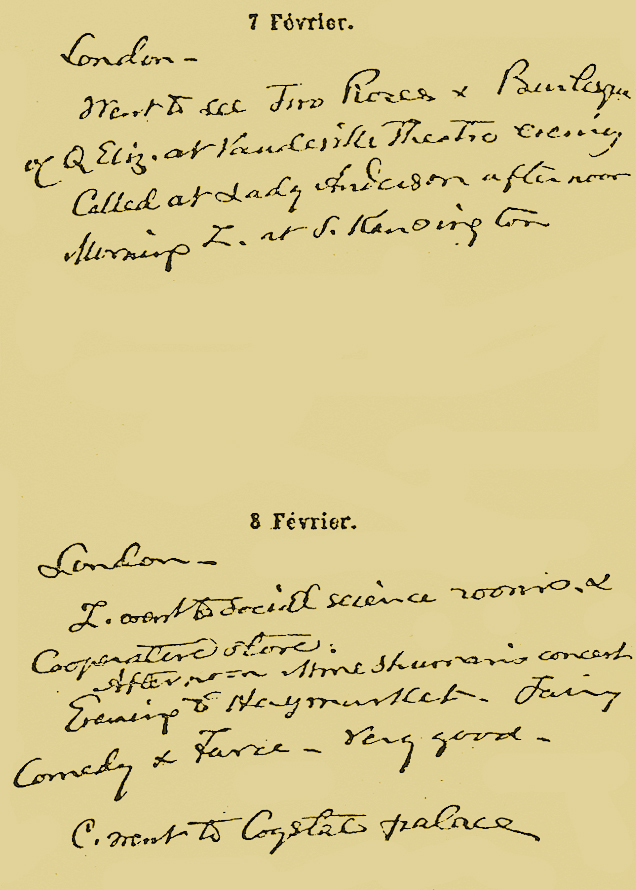 7 Février.
London -
Went to see Two Roses & Burlesque
of Q Eliz. at Vaudeville Theatre evening
Called at Lady Anderson afternoon
Morning L. at S. Kensington
8 Février.
London -
L. went to Social science rooms. &
Cooperative store.
Afternoon Mme Shuman's concert
Evening to Haymarket - Fairy
Comedy & Farce - Very good -
C. went to Crystal palace